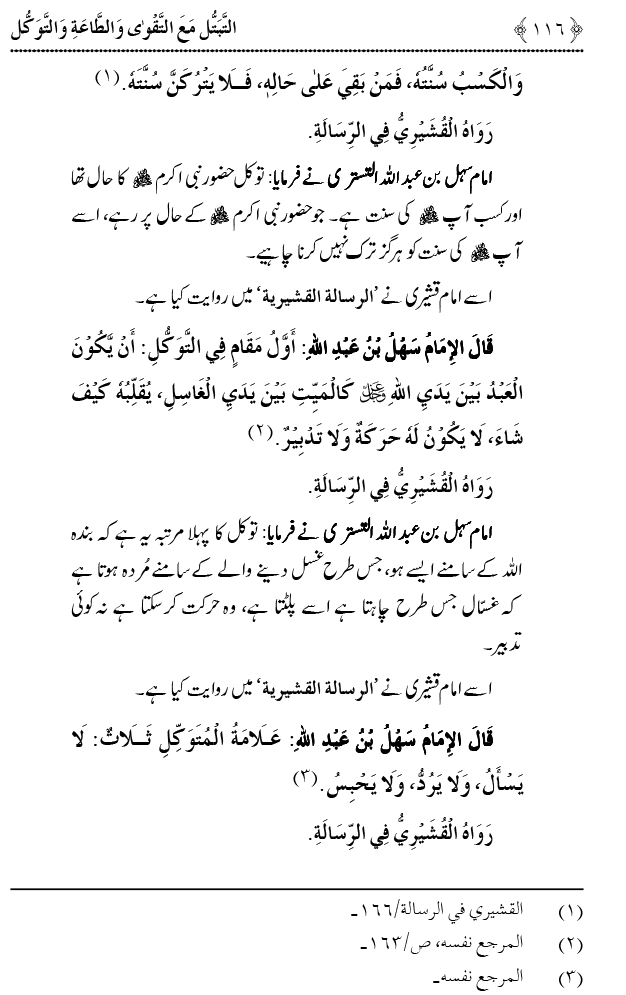 ﴿١١٦﴾ التَّبَتُّل مَعَ التَّقْوٰى وَالطَّاعَةِ وَالتَّوَكُّل
وَالْكَسْبُ سُنَّتُهٗ، فَمَنْ بَقِيَ عَلٰى حَالِهٖ، فَـلَا يَتْرُكَنَّ سُنَّتَهٗ.(١)
رَوَاهُ الْقُشَيْرِيُّ فِي الرِّسَالَةِ.
امام سہل بن عبد اللہ التستری نے فرمایا: توکل حضور نبی اکرم ﷺ کا حال تھا
اور کسب آپ ﷺ کی سنت ہے۔ جو حضور نبی اکرم ﷺ کے حال پر رہے، اسے
آپ ﷺ کی سنت کو ہرگز ترک نہیں کرنا چاہیے۔
اسے امام قشیری نے ’الرسالة القشيرية‘ میں روایت کیا ہے۔
قَالَ الإِمَامُ سَهْلُ بْنُ عَبْدِ اللهِ: أَوَّلُ مَقَامٍ فِي التَّوَكُّلِ: أَنْ يَّكُوْنَ
الْعَبْدُ بَيْنَ يَدَيِ اللهِ عزوجل كَالْمَيِّتِ بَيْنَ يَدَيِ الْغَاسِلِ، يُقَلِّبُهٗ كَيْفَ
شَاءَ، لَا يَكُوْنُ لَهٗ حَرَكَةٌ وَلَا تَدْبِيْرٌ.(٢)
رَوَاهُ الْقُشَيْرِيُّ فِي الرِّسَالَةِ.
امام سہل بن عبد اللہ التستری نے فرمایا: توکل کا پہلا مرتبہ یہ ہے کہ بندہ
اللہ کے سامنے ایسے ہو، جس طرح غسل دینے والے کے سامنے مُردہ ہوتا ہے
کہ غسّال جس طرح چاہتا ہے اسے پلٹتا ہے، وہ حرکت کر سکتا ہے نہ کوئی
تدبیر۔
اسے امام قشیری نے ’الرسالة القشيرية‘ میں روایت کیا ہے۔
قَالَ الإِمَامُ سَهْلُ بْنُ عَبْدِ اللهِ: عَـلَامَةُ الْمُتَوَكِّلِ ثَـلَاثٌ: لَا
يَسْأَلُ، وَلَا يَرُدُّ، وَلَا يَحْبِسُ.(٣)
رَوَاهُ الْقُشَيْرِيُّ فِي الرِّسَالَةِ.
(١) القشيري في الرسالة/١٦٦ـ
(٢) المرجع نفسه، ص/١٦٣ـ
(٣) المرجع نفسهـ